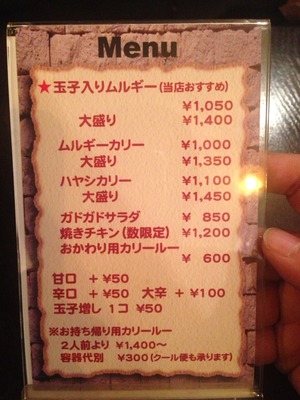 Menu
★玉子入りムルギー(当店おすすめ)
¥1,050
大盛り ¥1,400
ムルギーカリー ¥1,000
大盛り ¥1,350
ハヤシカリー ¥1,100
大盛り ¥1,450
ガドガドサラダ ¥ 850
焼きチキン(数限定) ¥1,200
おかわり用カリールー
¥ 600
甘口 +¥50
辛口 +¥50 大辛 +¥100
玉子増し 1コ ¥50
※お持ち帰り用カリールー
2人前より ¥1,400〜
容器代別 ¥300(クール便も承ります)